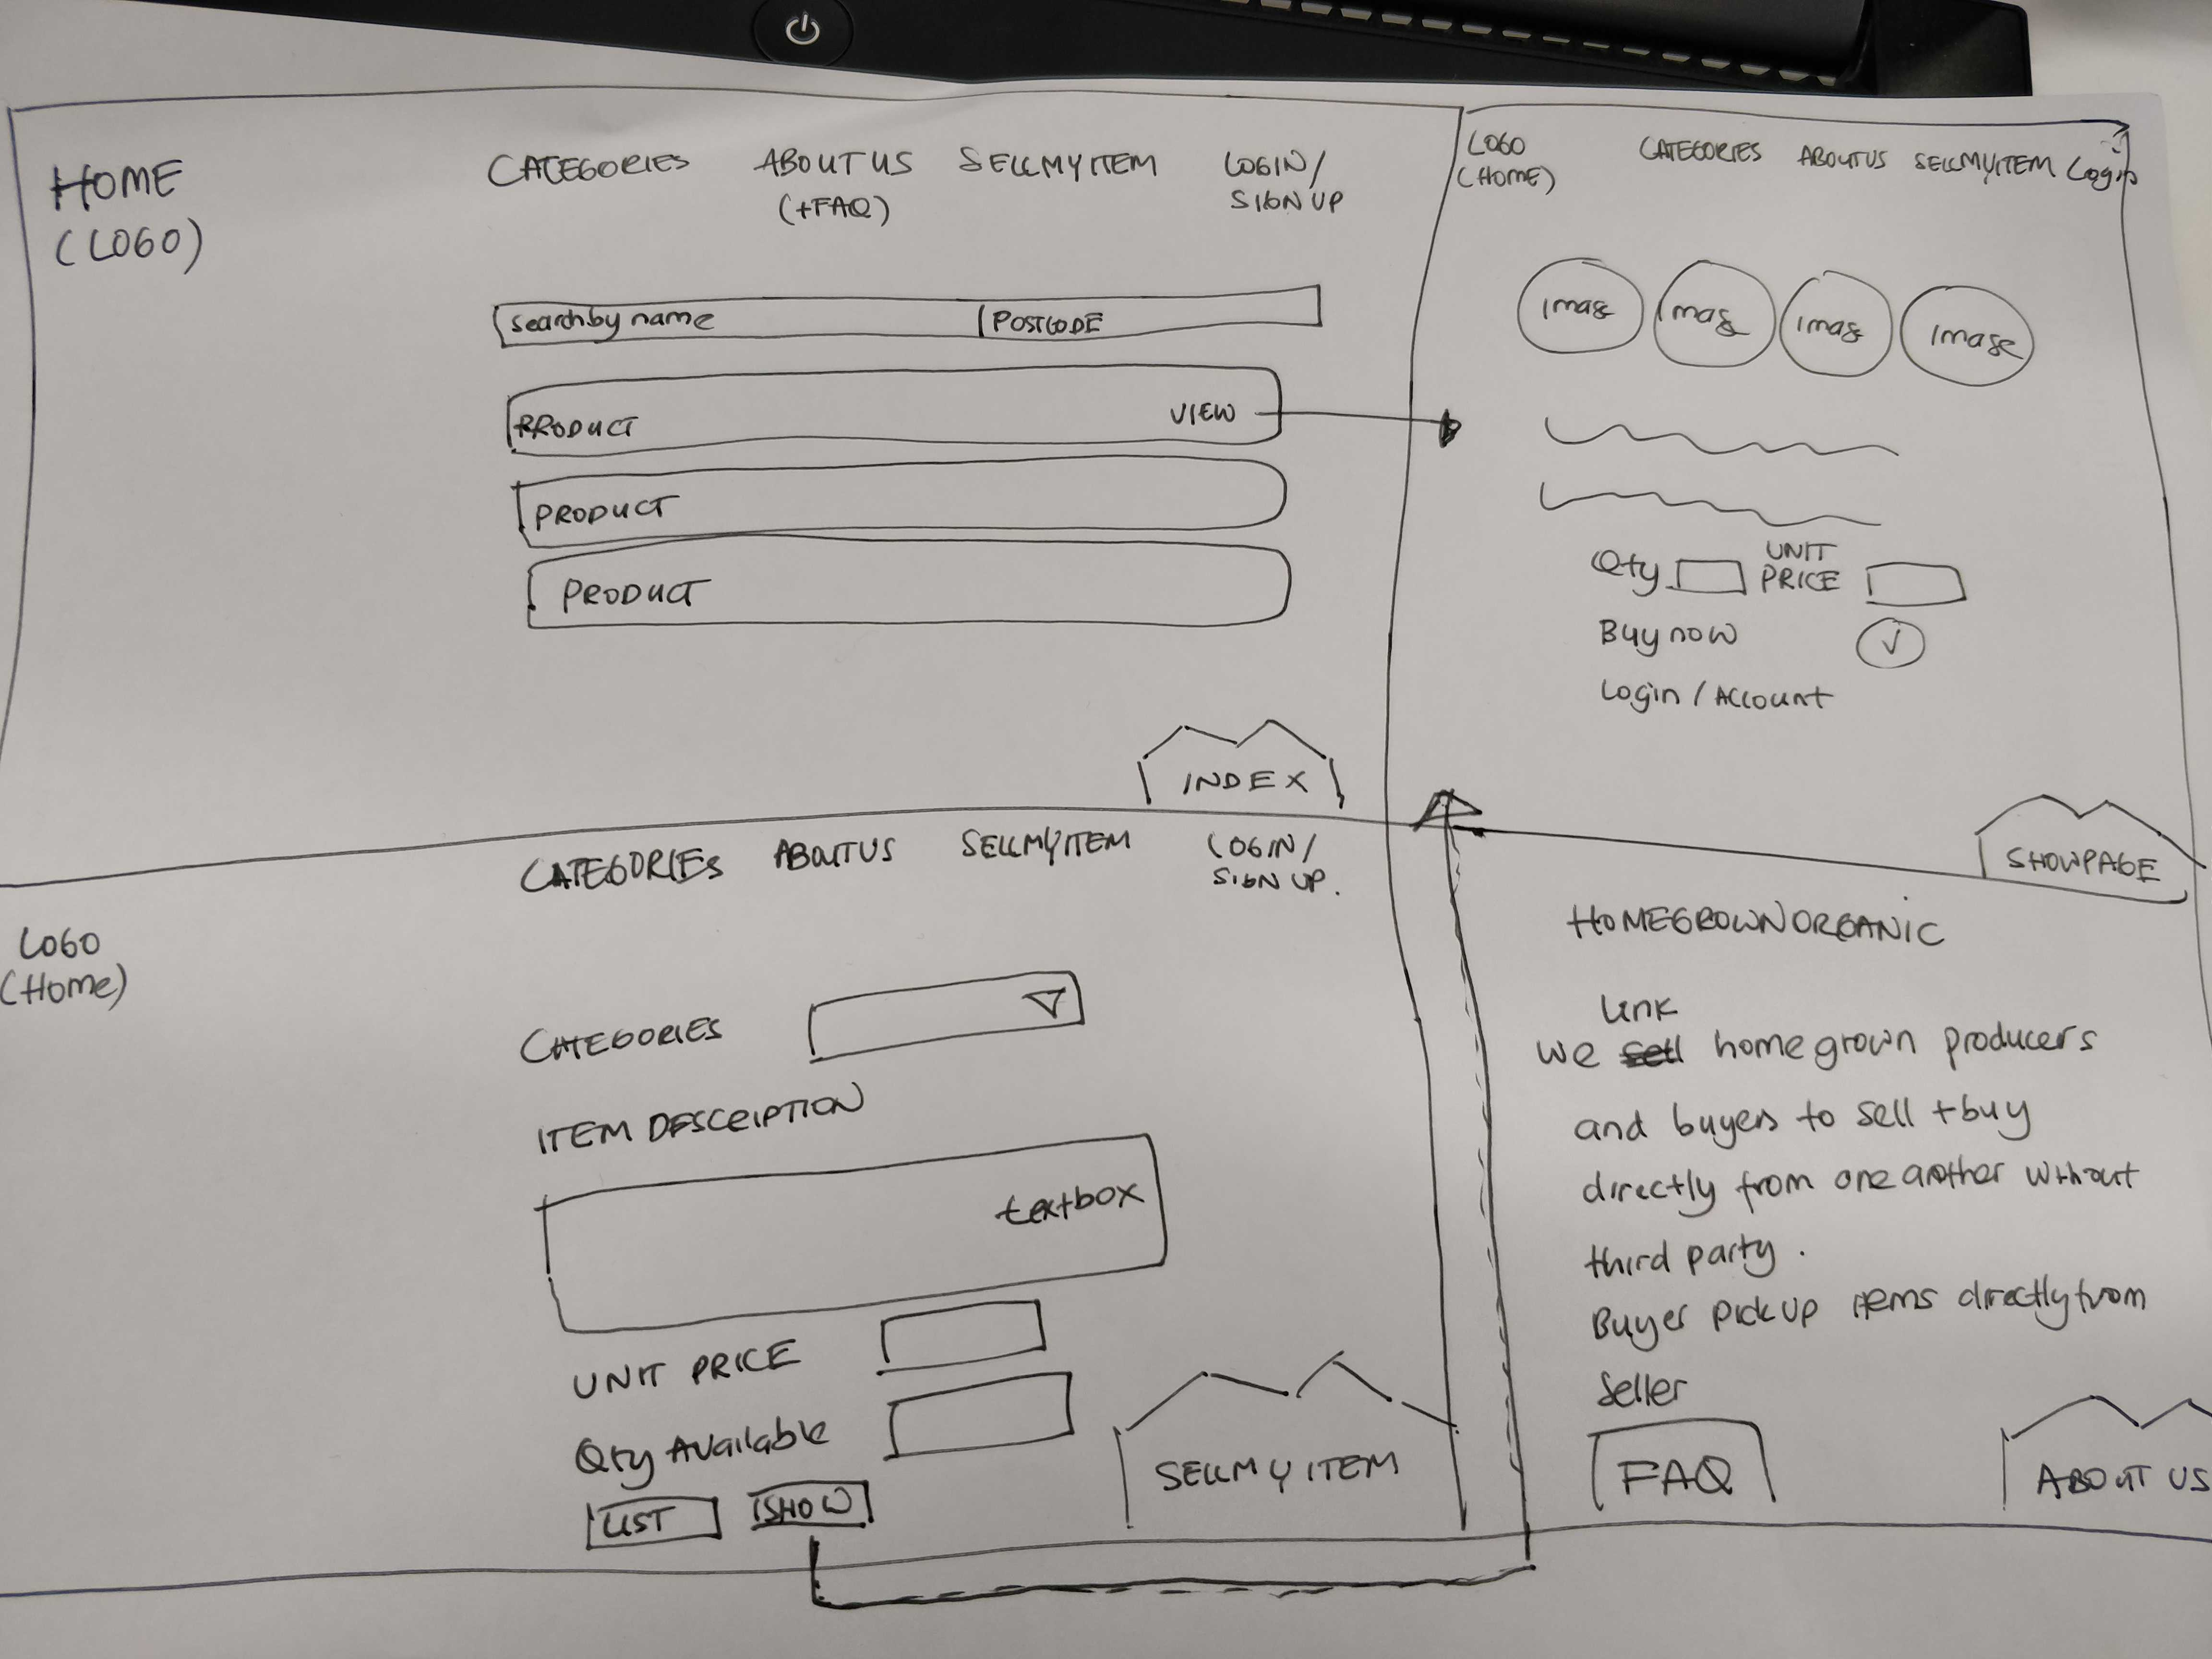 HOME
(LOGO)
CATEGORIES
ABOUT US
(+FAQ)
SELLMYITEM
LOGIN/
SIGN UP
Search by name
POSTCODE
PRODUCT
VIEW
PRODUCT
PRODUCT
INDEX
LOGO
(HOME)
CATEGORIES
ABOUTUS
SELLMYITEM
Login
Image
Image
Image
Image
Qty
UNIT
PRICE
Buy now
Login / Account
SHOWPAGE
LOGO
(Home)
CATEGORIES
ABOUTUS
SELLMYITEM
LOGIN/
SIGN UP.
CATEGORIES
ITEM DESCRIPTION
textbox
UNIT PRICE
Qty Available
LIST
SHOW
SELLMYITEM
HOMEGROWNORGANIC
Link
We sell homegrown producers
and buyers to sell + buy
directly from one another without
third party.
Buyer pick up items directly from
Seller
FAQ
ABOUT US